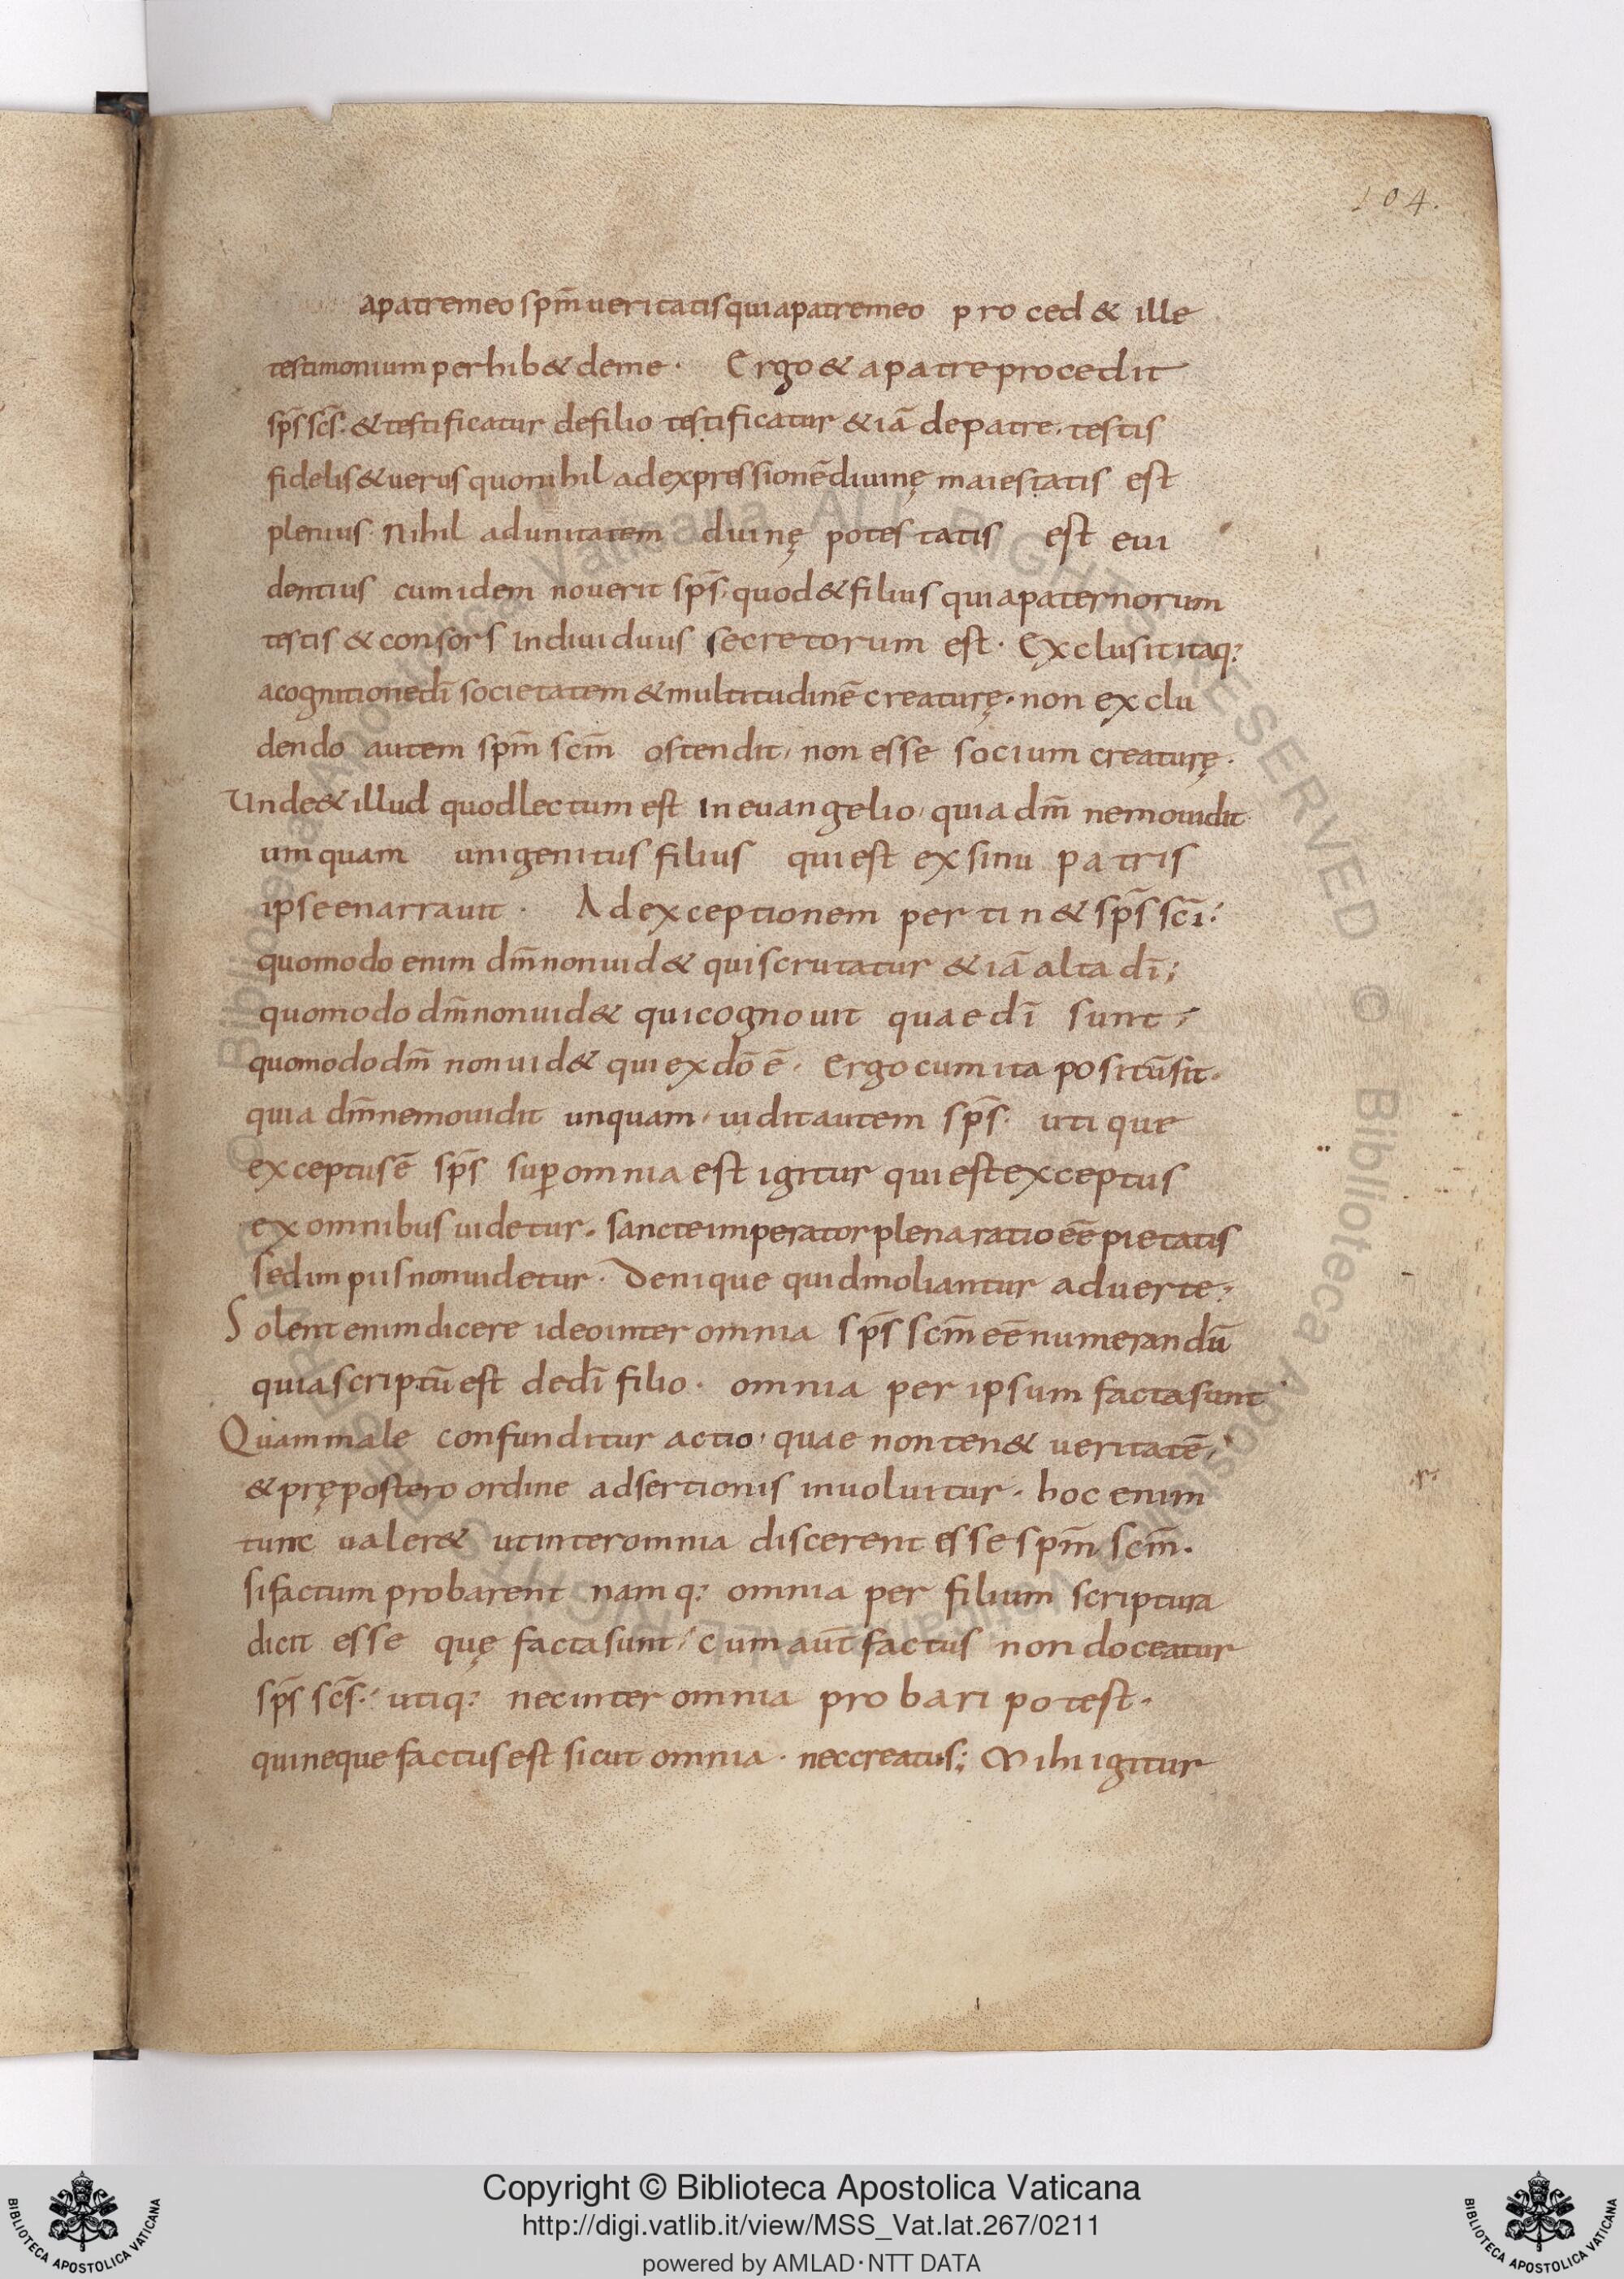 104.
apatremeo spm̄ueritatisquiapatremeo proced& ille
testimonium perhib& deme· Ergo & apatreprocedit
sp̄s sc̄s. & testificatur defilio testificatur &iā depatre. testis
fidelis&uerus quonihil adexpressionēdiuinę maiestatis est
plenius· Nihil adunitatem diuinę potestatis est eui
dentius cumidem nouerit sp̄s. quod&filius quiapaternorum
testis & consors indiuiduus secretorum est· Exclusititaq:
acognitionedī societatem &multitudinē creaturę. non exclu
dendo autem spm̄ scm̄ ostendit, non esse socium creaturę.
Unde& illud quodlectum est Ineuangelio, quia dm̄ nemouidit
umquam unigenitus filius quiest exsinu patris
ipseenarrauit· Adexceptionem pertin& sp̄s scī:
quomodo enim dm̄nonuid& quiscrutatur &iā alta dī;
quomodo dm̄nonuid& quicognouit quaedī sunt;
quomododm̄ nonuid& quiexdō ē. Ergocumita positūsit.
quia dm̄nemouidit unquam. uiditautem sp̄s. utique
exceptusē sp̄s sup̄omnia est igitur quiestexceptus
exomnibus uidetur. sancteimperatorplenaratioeē pietatis
sedimpiisnonuidetur. Denique quidmoliantur aduerte:
Solent enimdicere ideointer omnia sp̄s scm̄ eē numerandū
quiascriptū est dedī filio. omnia per ipsum factasunt
Quammale confunditur actio, quae nonten& ueritatē,
&prępostero ordine adsertionis inuoluitur. hoc enim
tunc ualer& utinteromnia discerent esse spm̄ scm̄.
sifactum probarent namq: omnia per filium scriptura
dicit esse quę factasunt, cumaut̄ factus non doceatur
sp̄s sc̄s. utiq: necinter omnia probari potest.
quineque factusest sicut omnia. neccreatus; Mihi igitur
© Biblioteca Apostolica Vaticana ALL RIGHTS RESERVED © Biblioteca Apostolica Vaticana ALL RIGHTS RESERVED
BIBLIOTECA APOSTOLICA VATICANA
Copyright © Biblioteca Apostolica Vaticana
http://digi.vatlib.it/view/MSS_Vat.lat.267/0211
powered by AMLAD·NTT DATA
BIBLIOTECA APOSTOLICA VATICANA